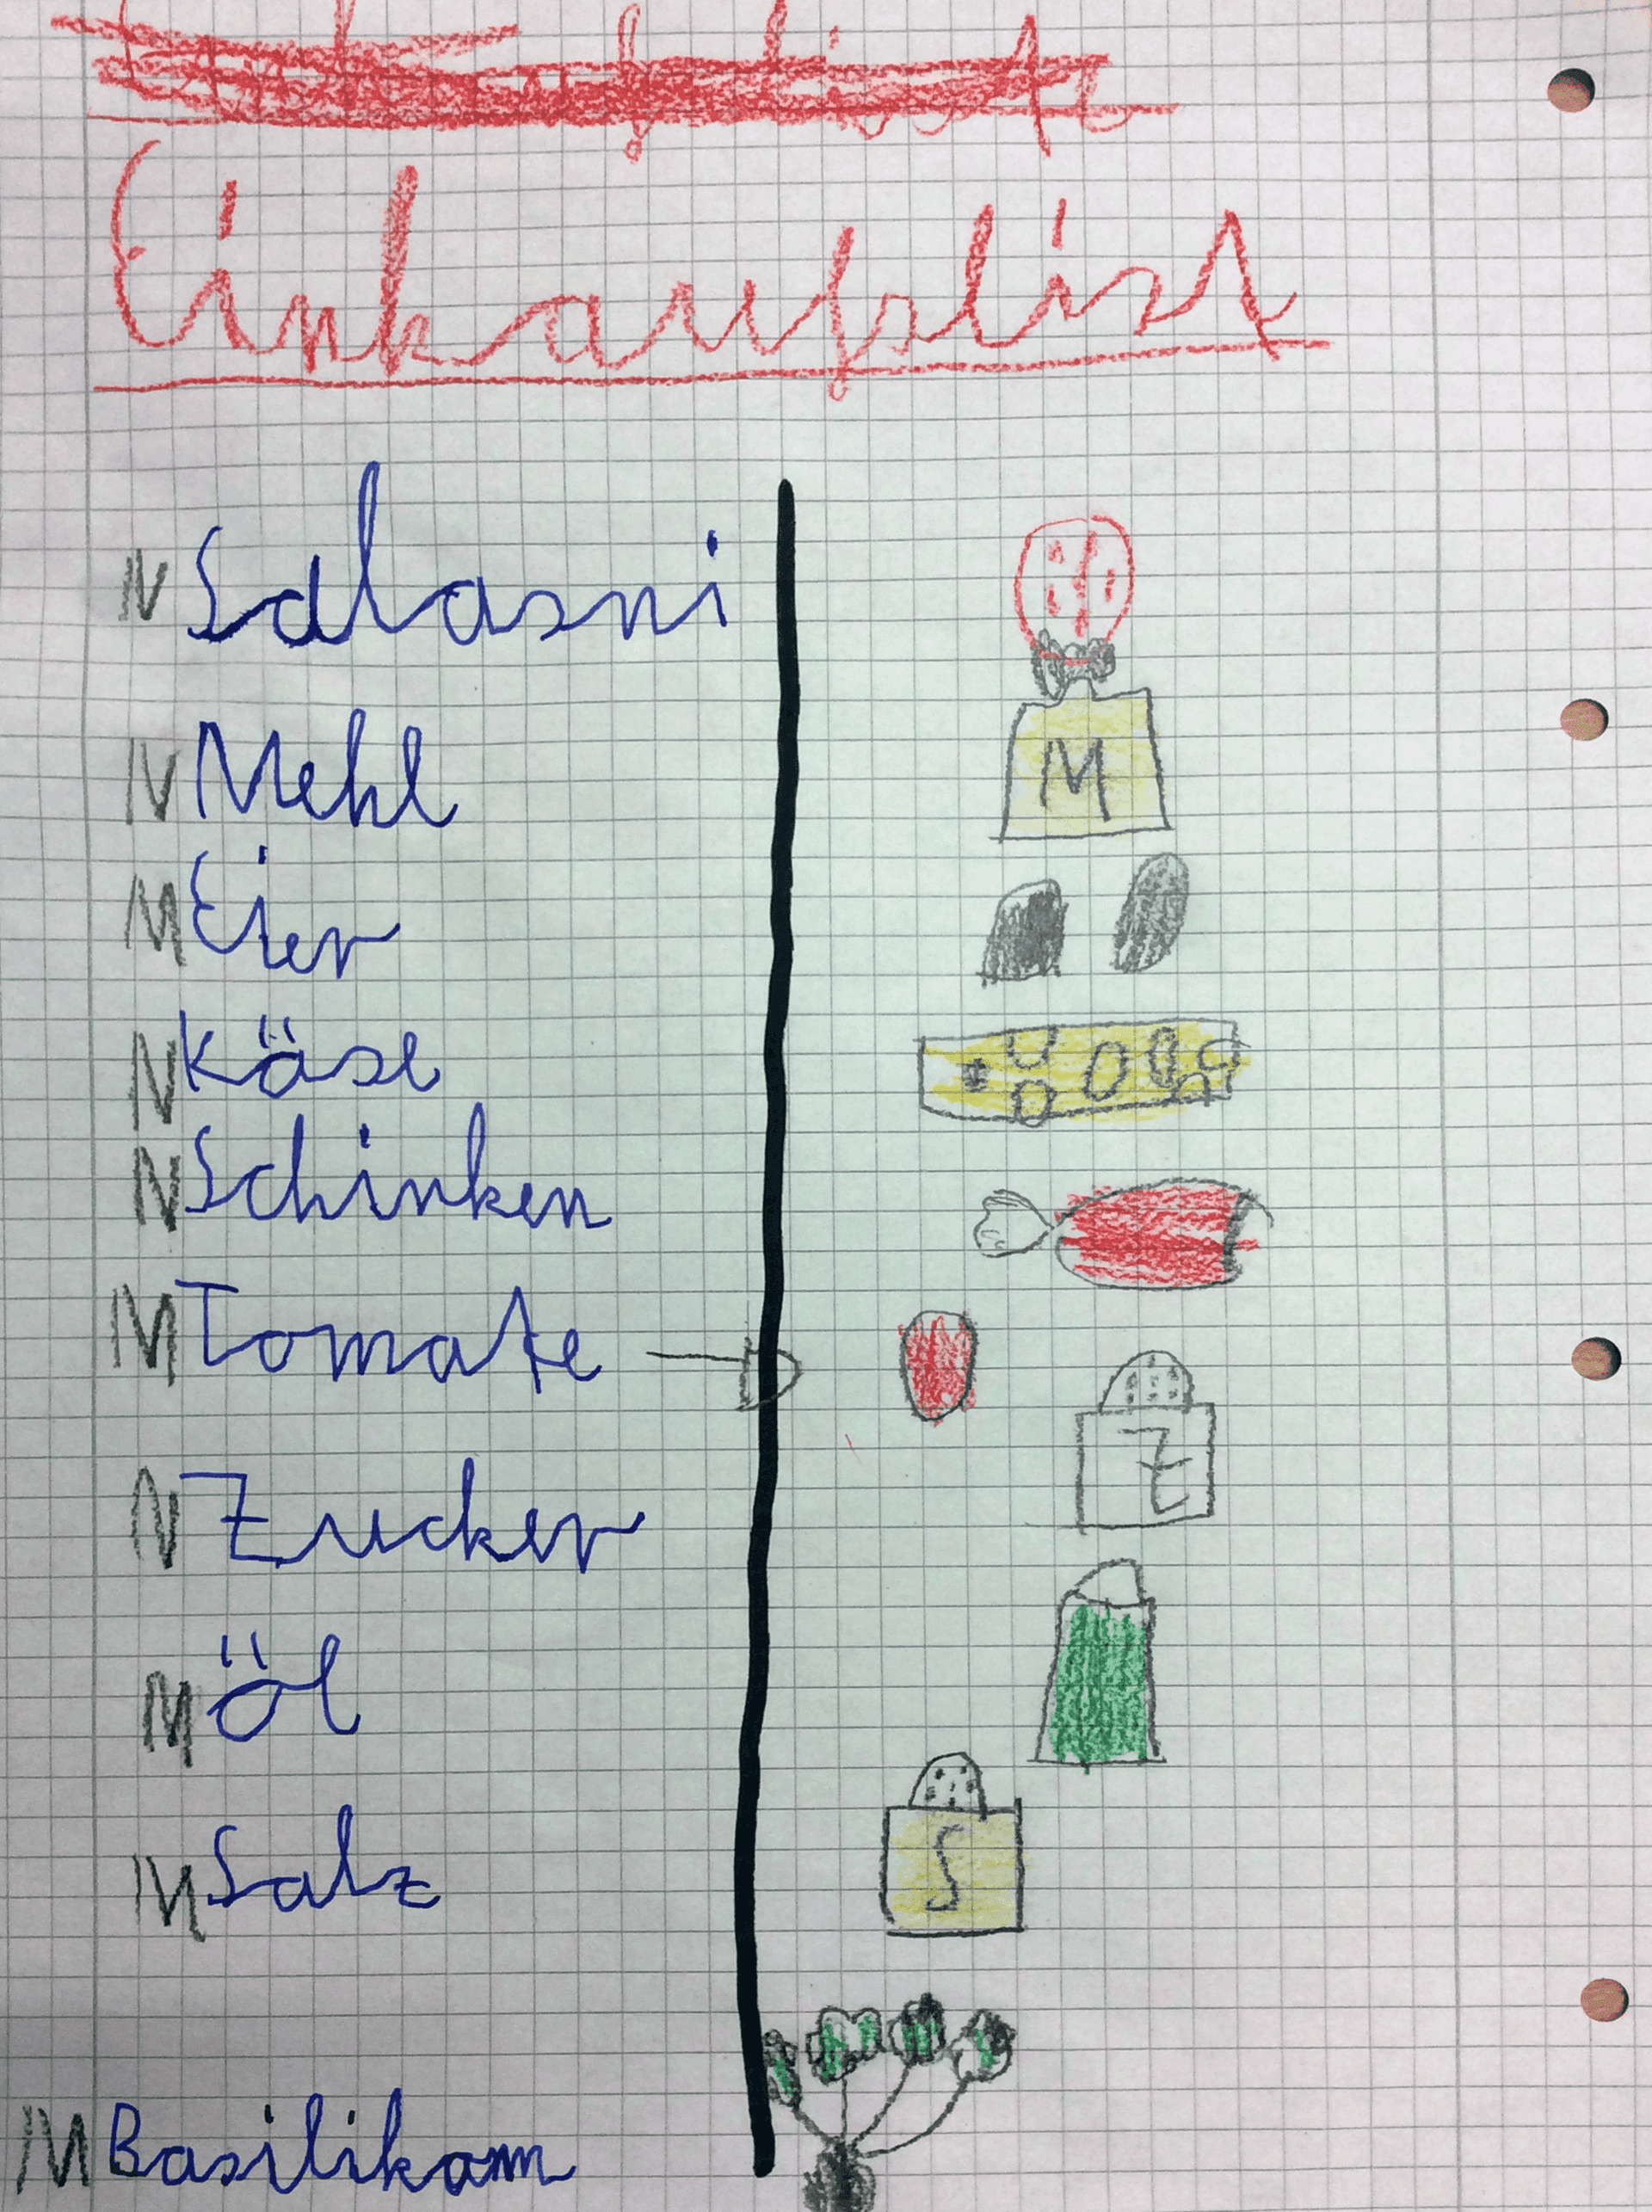 Einkaufslist
N Salasni
N Mehl
M
M Eier
N Käse
N Schinken
M Tomate
Z
N Zucker
M Öl
M Salz
S
M Basilikam